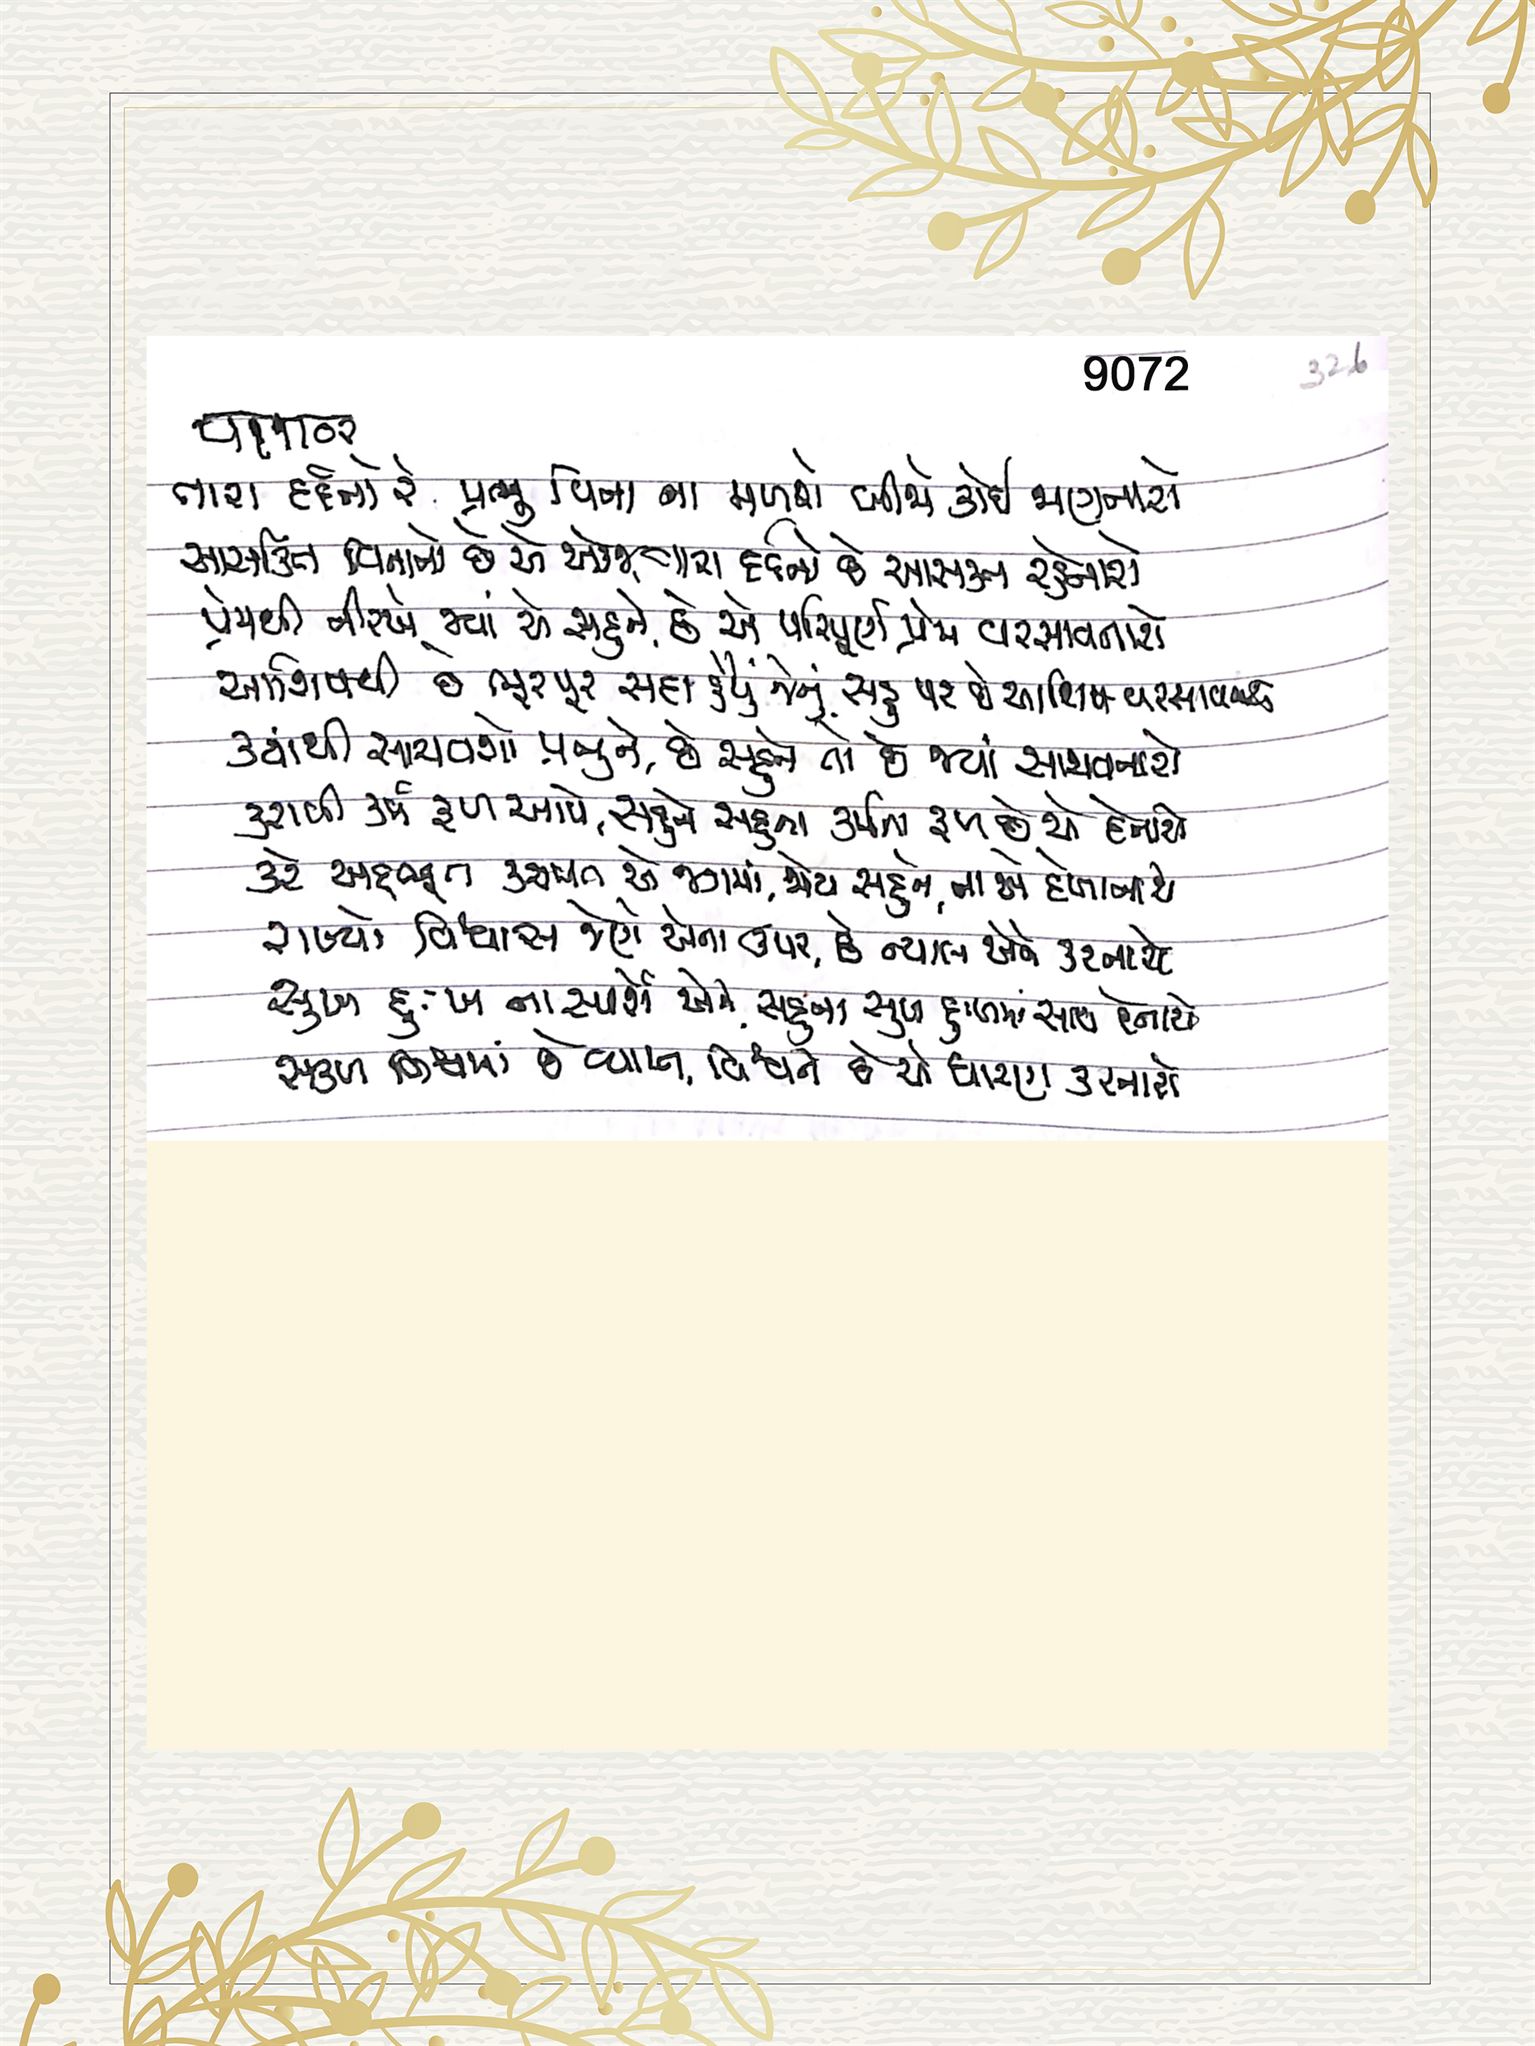 9072
326
તારા દર્દનો રે પ્રભુ વિના ના મળશે બીજો કોઈ જાણનારો
આસક્તિ વિનાનો છે એ એકજ, તારા દર્દનો છે આસક્ત રહેનારો
પ્રેમથી નીરખે જ્યાં એ સહુને, છે એ પરિપૂર્ણ પ્રેમ વરસાવનારો
આશિષથી છે ભરપૂર સદા હૈયું જેનું, સહુ પર છે આશિષ વરસાવનાર
ક્યાંથી સાચવશો પ્રભુને, છે સહુને તો છે જ્યાં સાચવનારો
કરાવી કર્મ ફળ આપે, સહુને સહુના કર્મના ફળ છે એ દેનારો
કરે અદ્ભૂત કરામત એ જગમાં, જોય સહુને, ના એ દેખાનારો
રાખ્યો વિશ્વાસ જેણે એના ઉપર, છે ન્યાલ એને કરનારો
સુખ દુઃખ ના સ્પર્શે એને, સહુના સુખ દુઃખમાં સાથ દેનારો
સકળ વિશ્વમાં છે વ્યાપ્ત, વિશ્વને છે એ ધારણ કરનારો